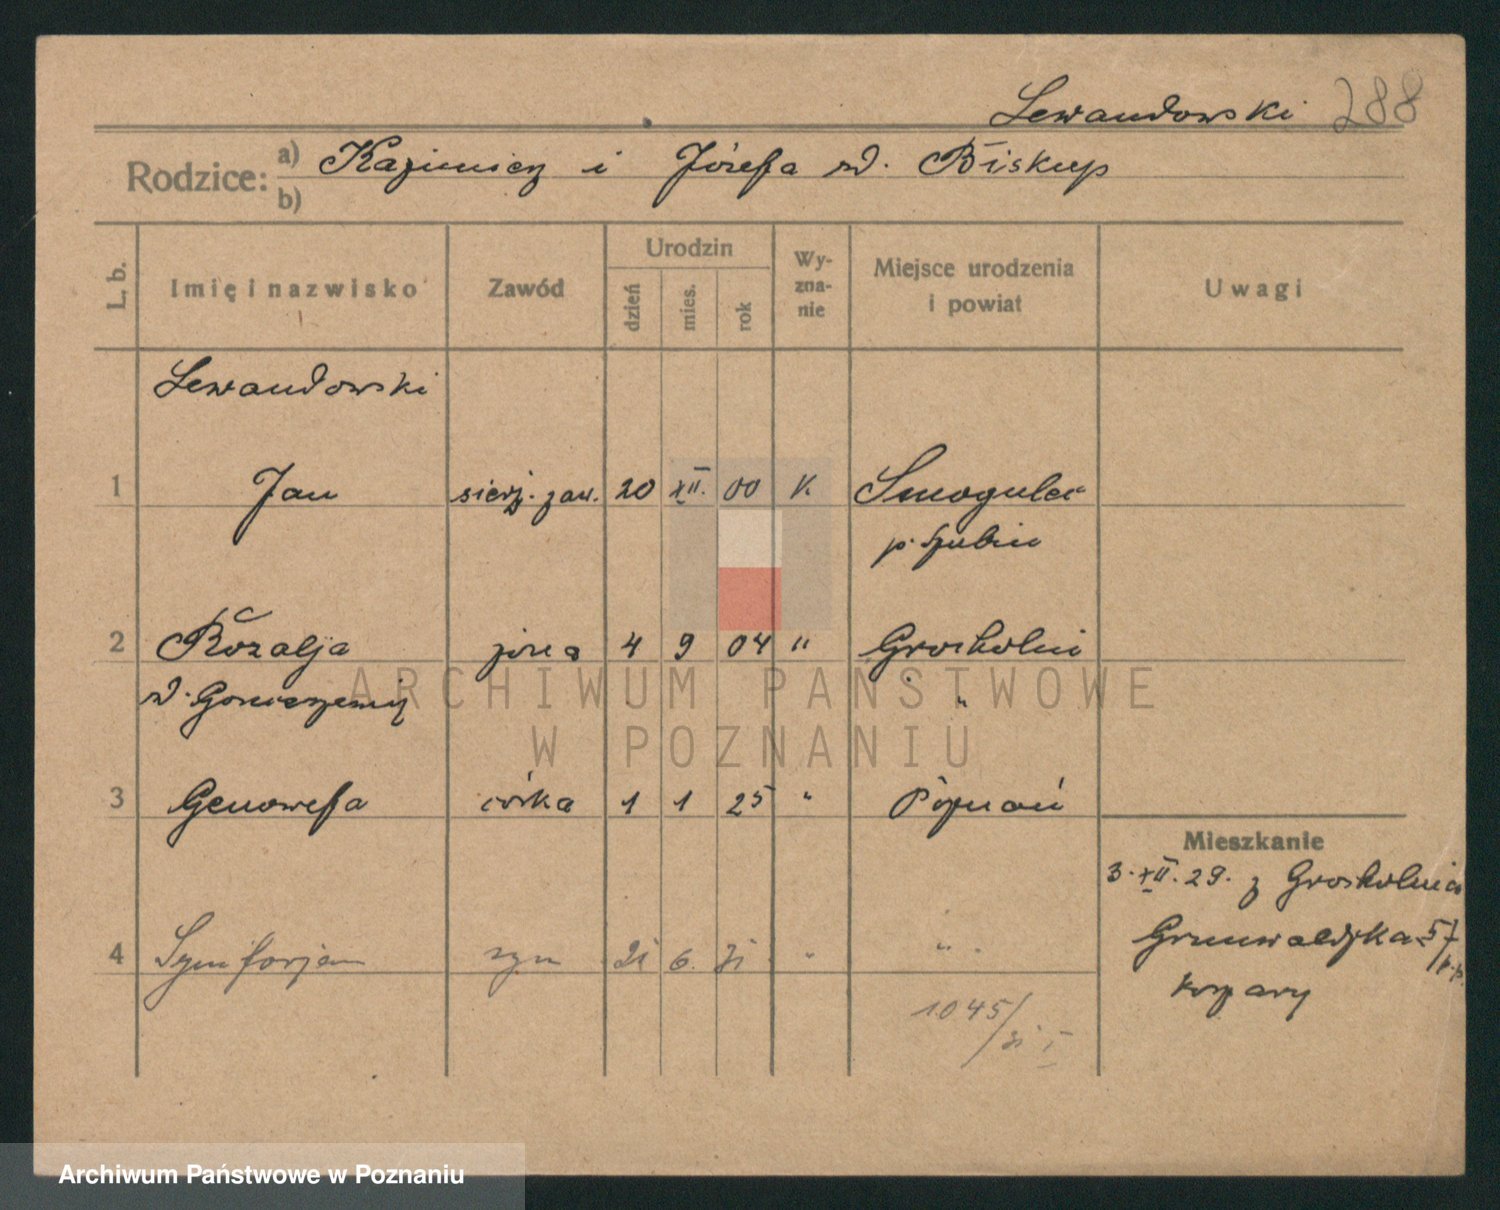 Lewandowski 288
Rodzice: a) Kazimierz i Józefa zd. Biskup
b)
L. b. Imię i nazwisko Zawód Urodzin dzień mies. rok Wy-zna-nie Miejsce urodzenia i powiat Uwagi
Lewandowski
1 Jan sierż. zaw. 20 XII. 00 K. Smogulec
p. Szubin
2 Rozalja żona 4 9 04 " Grocholin
zd. "
3 Genowefa córka 1 1 25 " Poznań
Mieszkanie
3.XII.29. z Grocholina
4 Symforjan syn 21 6. 31 " "
Grunwaldzka
koszary
1045/31 I
ARCHIWUM PAŃSTWOWE
W POZNANIU
Archiwum Państwowe w Poznaniu